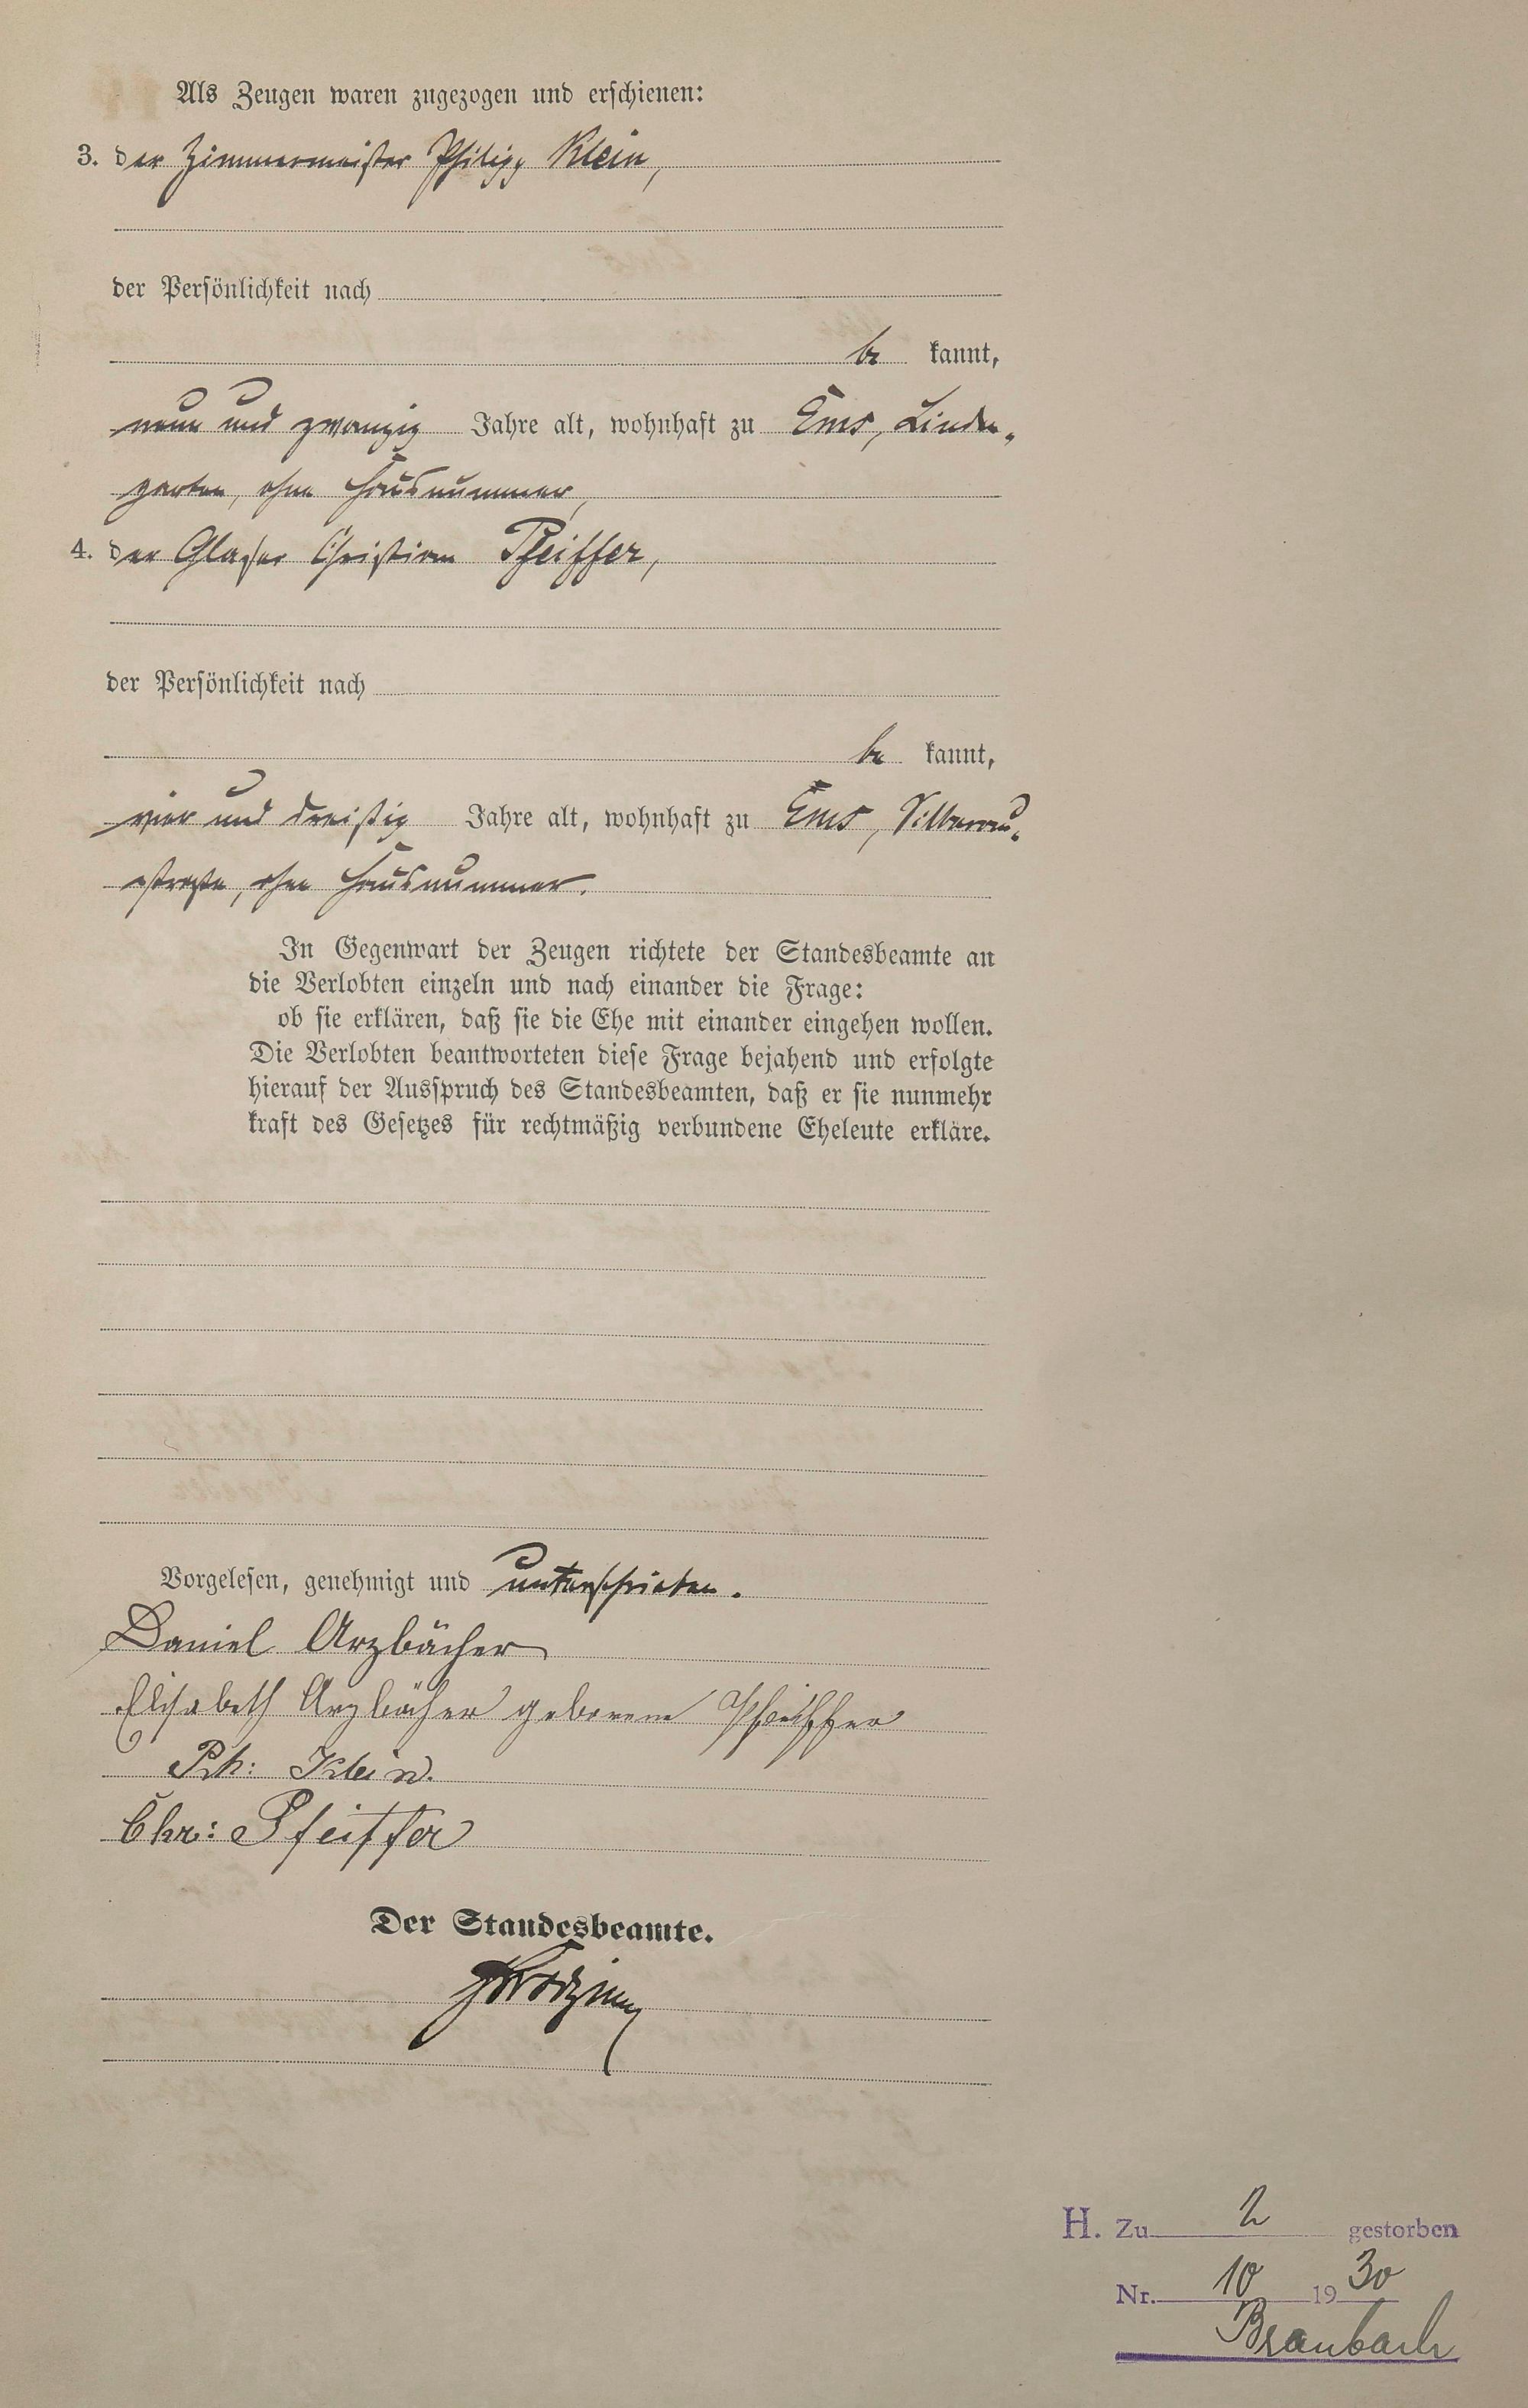 Als Zeugen waren zugezogen und erschienen:
3. der Zimmermeister Philipp Klein,
der Persönlichkeit nach
be kannt,
neun und zwanzig Jahre alt, wohnhaft zu Ems, Linden-
garten, ohne Hausnummer,
4. der Glaser Christian Pfeiffer,
der Persönlichkeit nach
be kannt,
vier und dreißig Jahre alt, wohnhaft zu Ems, Silberau-
straße, ohne Hausnummer.
In Gegenwart der Zeugen richtete der Standesbeamte an
die Verlobten einzeln und nach einander die Frage:
ob sie erklären, daß sie die Ehe mit einander eingehen wollen.
Die Verlobten beantworteten diese Frage bejahend und erfolgte
hierauf der Ausspruch des Standesbeamten, daß er sie nunmehr
kraft des Gesetzes für rechtmäßig verbundene Eheleute erkläre.
Vorgelesen, genehmigt und unterschrieben.
Daniel Arzbächer
Elisabeth Arzbächer geborene Pfeiffer
Ph: Klein.
Chr: Pfeiffer
Der Standesbeamte.
H. Zu 2 gestorben
Nr. 10 1930
Braubach